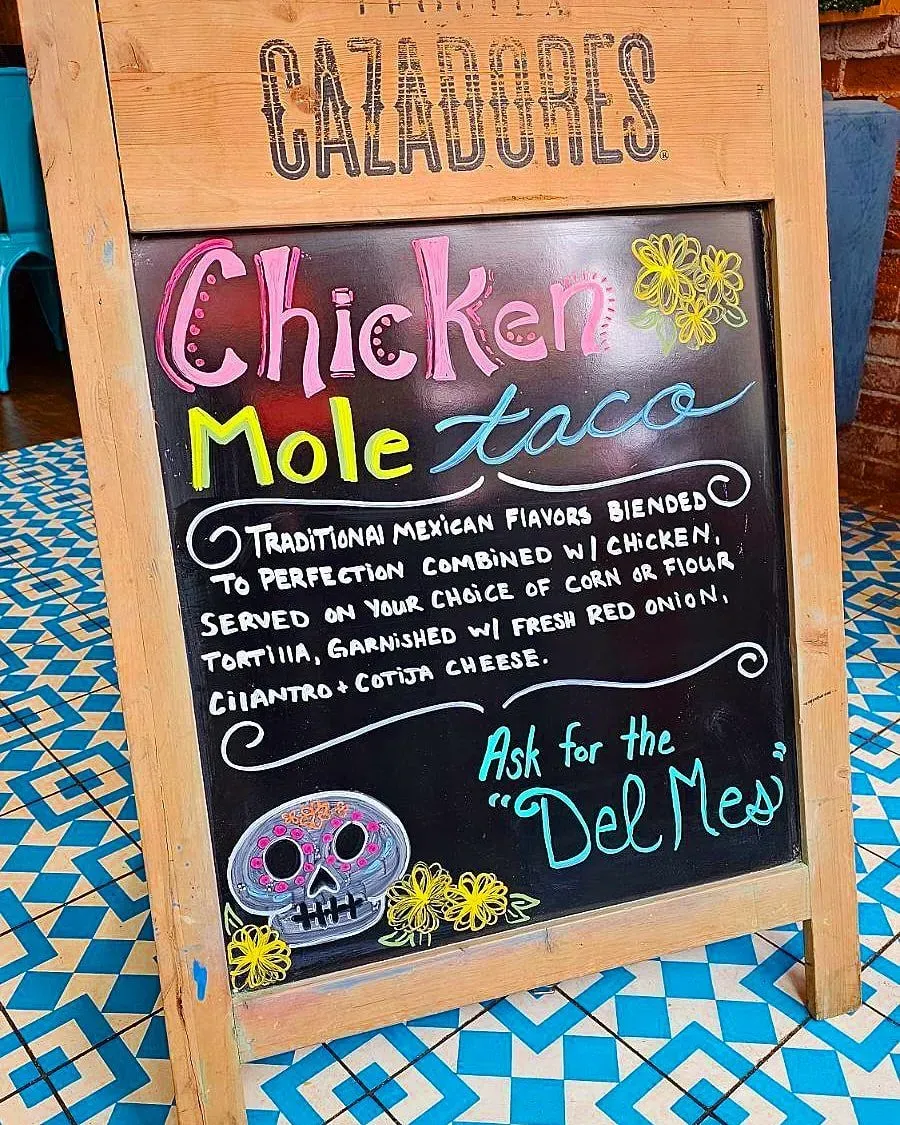 TEQUILA
CAZADORES®
Chicken
Mole taco
TRADITIONAL MEXICAN FLAVORS BLENDED
TO PERFECTION COMBINED W/ CHICKEN,
SERVED ON YOUR CHOICE OF CORN OR FLOUR
TORTILLA, GARNISHED W/ FRESH RED ONION,
CILANTRO + COTIJA CHEESE.
Ask for the
"Del Mes"